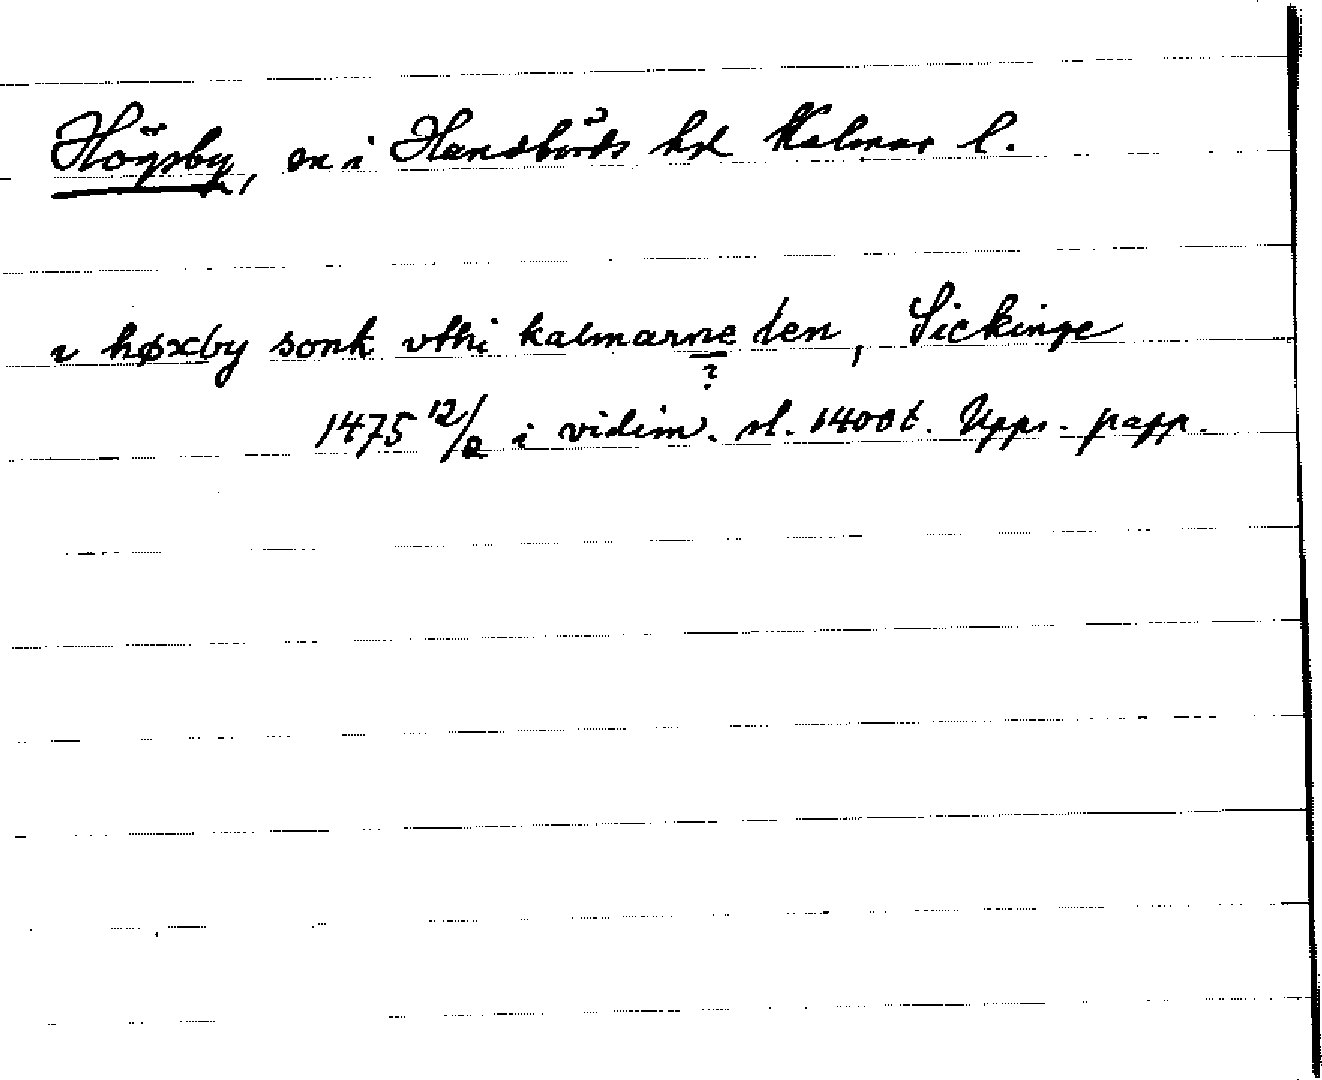 Högsby, sn i Handbörds hd Kalmar l.
i høxby sonk vthi kalmarne len, Sickinge
?
1475 12/2 i vidim. sl. 1400 t. Upps. papp.